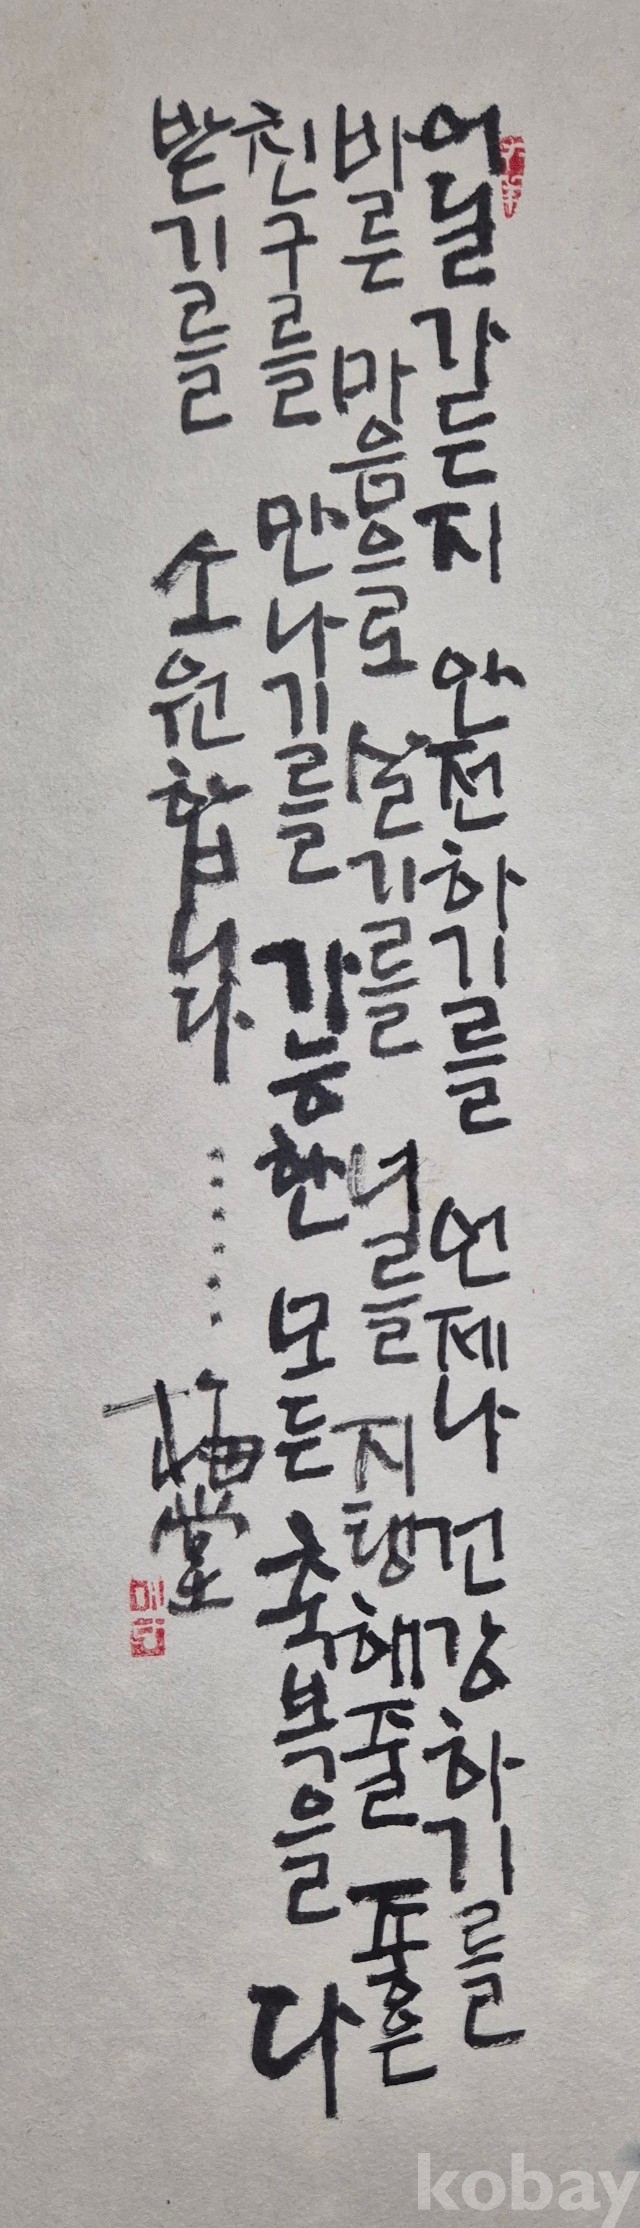 어딜 가든지 안전하기를 언제나 건강하기를
바른 마음으로 살기를 너를 지탱해줄 좋은
친구를 만나기를 가능한 모든 축복을 다
받기를 소원합니다 ······ 梅堂
매당
kobay